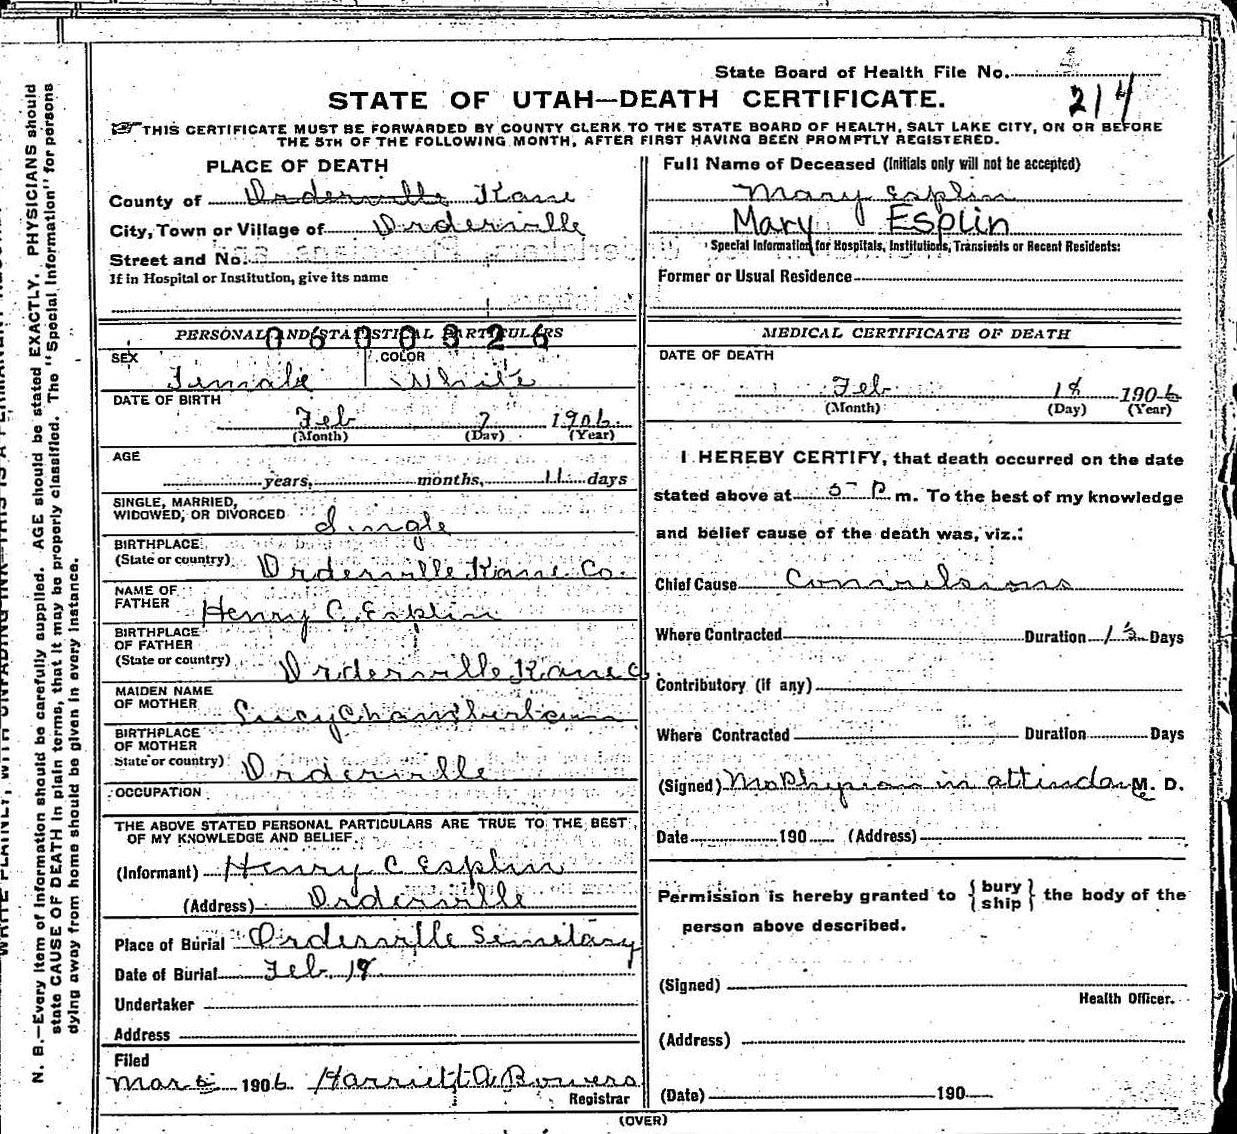 State Board of Health File No.
214
STATE OF UTAH—DEATH CERTIFICATE.
THIS CERTIFICATE MUST BE FORWARDED BY COUNTY CLERK TO THE STATE BOARD OF HEALTH, SALT LAKE CITY, ON OR BEFORE
THE 5TH OF THE FOLLOWING MONTH, AFTER FIRST HAVING BEEN PROMPTLY REGISTERED.
PLACE OF DEATH
County of Orderville Kane
City, Town or Village of Orderville
Street and No.
If in Hospital or Institution, give its name
PERSONAL AND STATISTICAL PARTICULARS
0600826
SEX
Female
COLOR
White
DATE OF BIRTH
Feb 7 1906
(Month) (Day) (Year)
AGE
years, months, 11 days
SINGLE, MARRIED,
WIDOWED, OR DIVORCED Single
BIRTHPLACE
(State or country) Orderville Kane Co.
NAME OF
FATHER Henry C. Esplin
BIRTHPLACE
OF FATHER
(State or country) Orderville Kane Co
MAIDEN NAME
OF MOTHER Lucy Chamberlain
BIRTHPLACE
OF MOTHER
State or country) Orderville
OCCUPATION
THE ABOVE STATED PERSONAL PARTICULARS ARE TRUE TO THE BEST
OF MY KNOWLEDGE AND BELIEF
(Informant) Henry C Esplin
(Address) Orderville
Place of Burial Orderville Semetary
Date of Burial Feb. 19
Undertaker
Address
Filed
Mar 1906 Harriett A Bowers
Registrar
Full Name of Deceased (Initials only will not be accepted)
Mary Esplin
Mary Esplin
Special Information for Hospitals, Institutions, Transients or Recent Residents:
Former or Usual Residence
MEDICAL CERTIFICATE OF DEATH
DATE OF DEATH
Feb 18 1906
(Month) (Day) (Year)
I HEREBY CERTIFY, that death occurred on the date
stated above at 5 P m. To the best of my knowledge
and belief cause of the death was, viz.:
Chief Cause Convulsions
Where Contracted Duration Days
Contributory (if any)
Where Contracted Duration Days
(Signed) No Physian in attendance M. D.
Date 190 (Address)
Permission is hereby granted to { bury ship } the body of the
person above described.
(Signed)
Health Officer.
(Address)
(Date) 190
(OVER)
N. B.—Every item of information should be carefully supplied. AGE should be stated EXACTLY. PHYSICIANS should
state CAUSE OF DEATH in plain terms, that it may be properly classified. The "Special Information" for persons
dying away from home should be given in every instance.